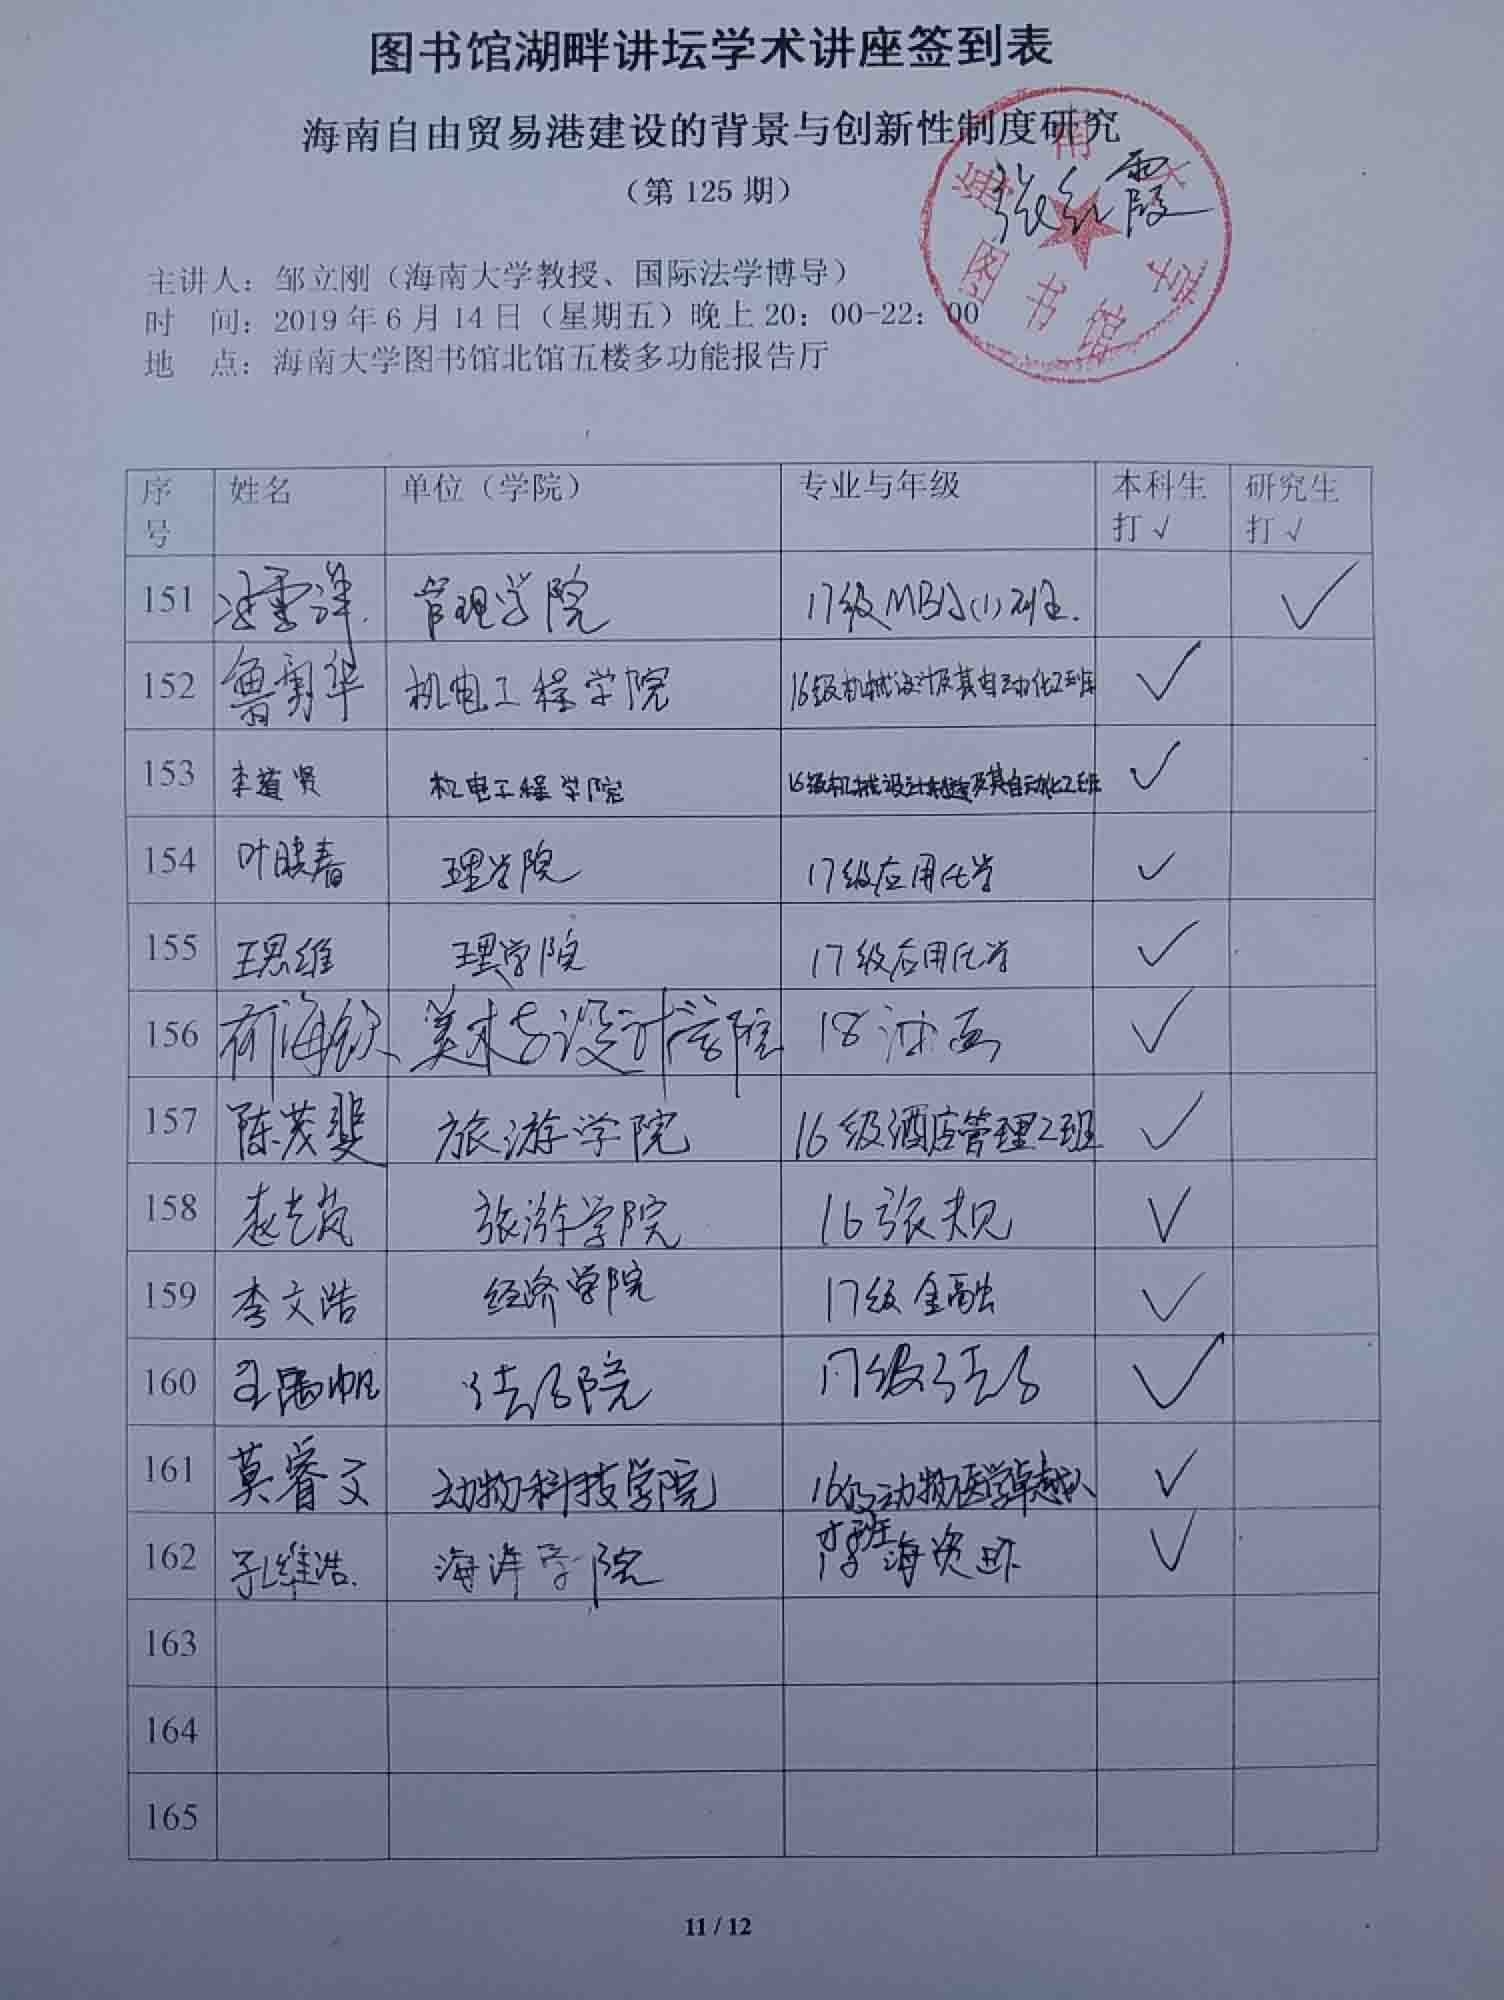 图书馆湖畔讲坛学术讲座签到表
海南自由贸易港建设的背景与创新性制度研究
（第 125 期）
张红霞
海南大学
图书馆
主讲人：邹立刚（海南大学教授、国际法学博导）
时 间：2019 年 6 月 14 日（星期五）晚上 20：00-22：00
地 点：海南大学图书馆北馆五楼多功能报告厅
序号 姓名 单位（学院） 专业与年级 本科生打√ 研究生打√
151 管理学院 17级MBA(1)班. ✓
152 鲁勇华 机电工程学院 16级机械设计及其自动化2班 ✓
153 李道贤 机电工程学院 16级机械设计制造及其自动化2班 ✓
154 叶晓春 理学院 17级应用化学 ✓
155 王思维 理学院 17级应用化学 ✓
156 美术与设计学院 18油画 ✓
157 陈茂斐 旅游学院 16级酒店管理2班 ✓
158 旅游学院 16旅规 ✓
159 李文浩 经济学院 17级金融 ✓
160 王禹帆 法学院 17级法学 ✓
161 莫睿文 动物科技学院 16级动物医学卓越人才班 ✓
162 孔维浩. 海洋学院 18海资 ✓
163
164
165
11 / 12